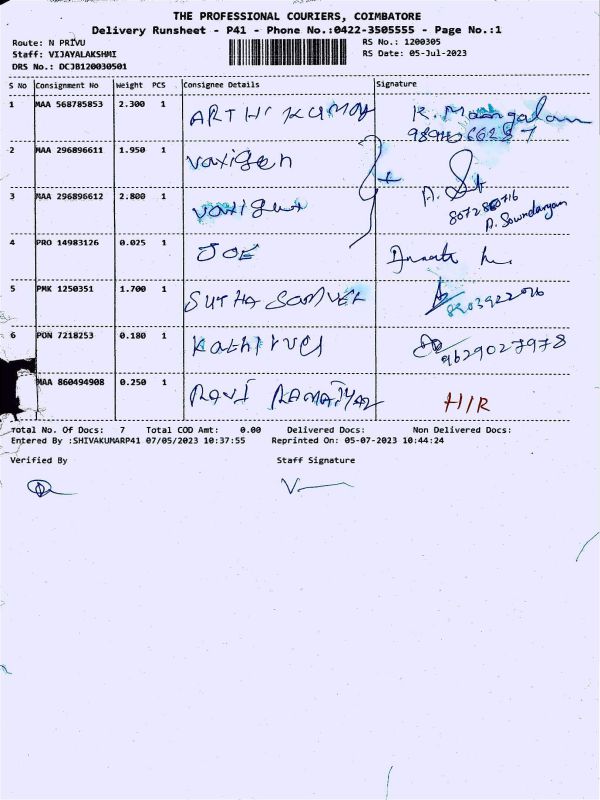 THE PROFESSIONAL COURIERS, COIMBATORE
Delivery Runsheet - P41 - Phone No.:0422-3505555 - Page No.:1
Route: N PRIVU RS No.: 1200305
Staff: VIJAYALAKSHMI RS Date: 05-Jul-2023
DRS No.: DCJB120030501
S No Consignment No Weight PCS Consignee Details Signature
1 MAA 568785853 2.300 1 ARTHI KUMAR K. Mangalam
2 MAA 296896611 1.950 1 vaxigen
3 MAA 296896612 2.800 1 vaxigen
D. Soundaryam
4 PRO 14983126 0.025 1 JOE
5 PMK 1250351 1.700 1 SUTHA SAMUEL
6 PON 7218253 0.180 1 Kathirvel 9629027978
MAA 860494908 0.250 1 RAVI H/R
Total No. Of Docs: 7 Total COD Amt: 0.00 Delivered Docs: Non Delivered Docs:
Entered By :SHIVAKUMARP41 07/05/2023 10:37:55 Reprinted On: 05-07-2023 10:44:24
Verified By Staff Signature